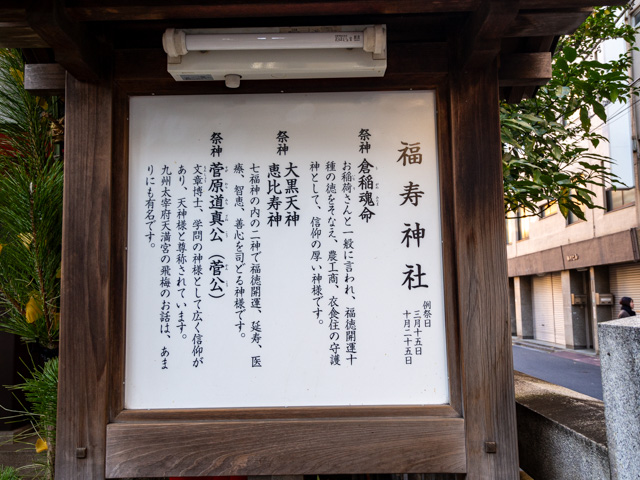 福寿神社
例祭日
三月十五日
十月二十五日
祭神 倉稲魂命
お稲荷さんと一般に言われ、福徳開運十
種の徳をそなえ、農工商、衣食住の守護
神として、信仰の厚い神様です。
祭神 大黒天神
恵比寿神
七福神の内の二神で福徳開運、延寿、医
療、智恵、善心を司どる神様です。
祭神 菅原道真公（菅公）
文章博士、学問の神様として広く信仰が
あり、天神様と尊称されています。
九州太宰府天満宮の飛梅のお話は、あま
りにも有名です。